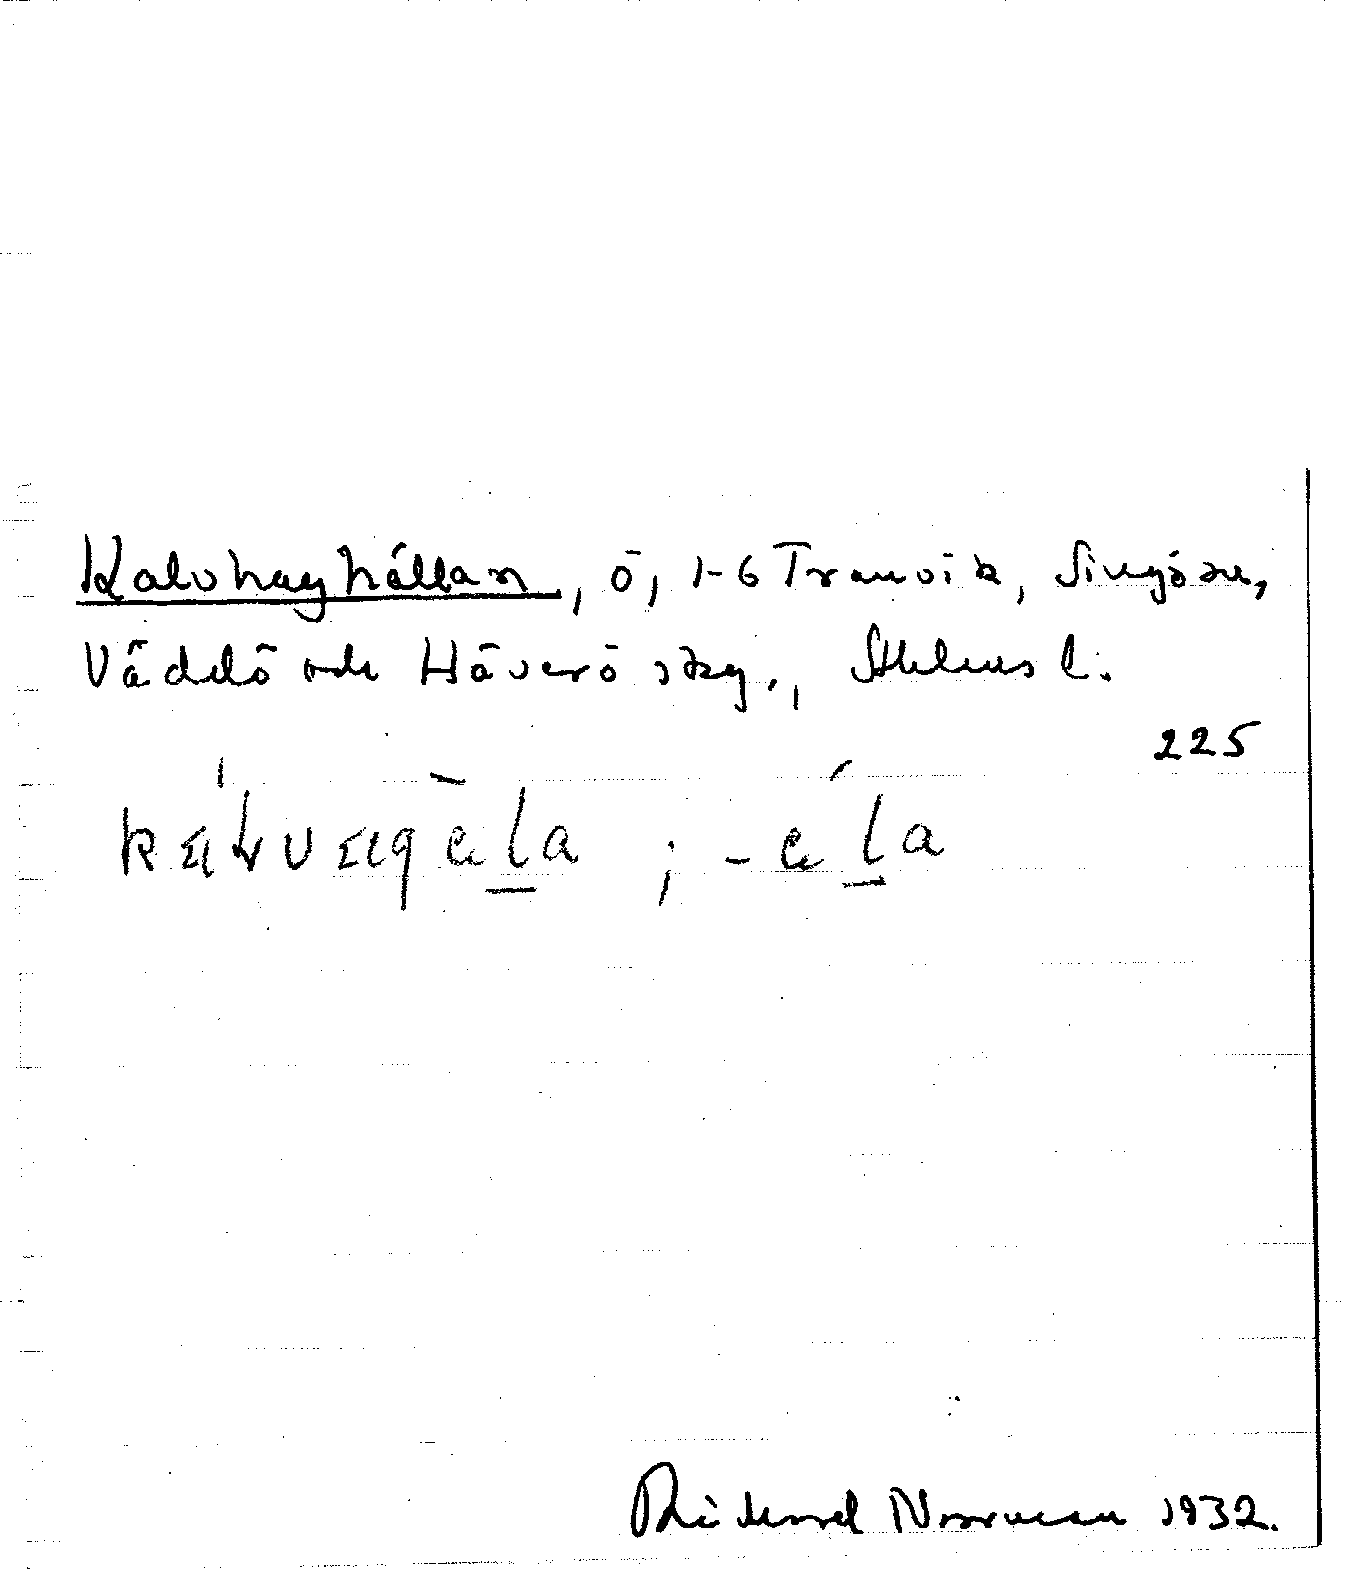 Kalvhaghällan, ö, 1-6 Tranvik, Singö sn,
Väddö och Häverö skg., Sthlms l.
225
Rickard Norrman 1932.